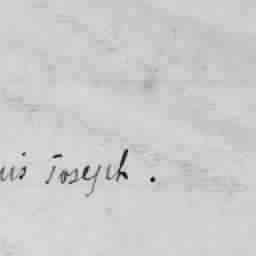 uis Joseph.